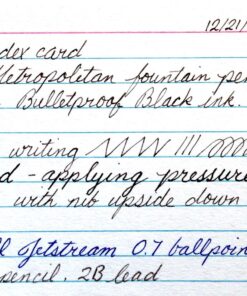 12/21/
dex card
Metropoletan fountain pen
Bulletproof Black ink.
writing
d - applying pressure
with nib upside down
l Jetstream 0.7 ballpoin
pencil. 2B lead